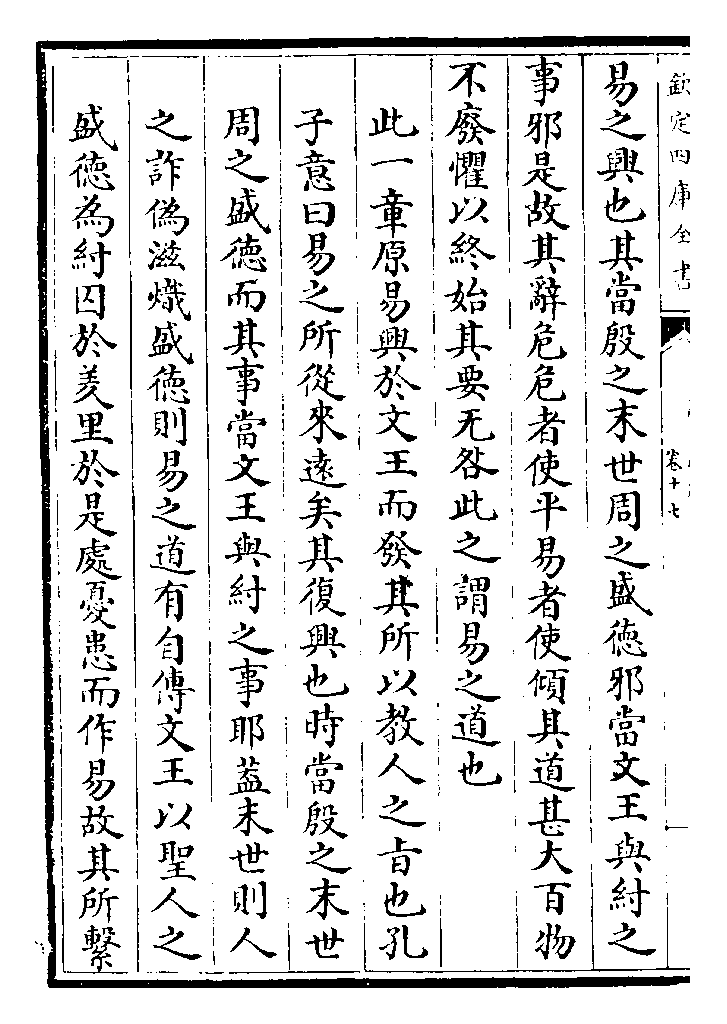 欽定四庫全書
卷十七
易之興也其當殷之末世周之盛德邪當文王與紂之
事邪是故其辭危危者使平易者使傾其道甚大百物
不廢懼以終始其要无咎此之謂易之道也
此一章原易興於文王而發其所以教人之㫖也孔
子意曰易之所從來遠矣其復興也時當殷之末世
周之盛德而其事當文王與紂之事耶葢末世則人
之詐偽滋熾盛德則易之道有自傳文王以聖人之
盛德為紂囚於羑里於是處憂患而作易故其所繫